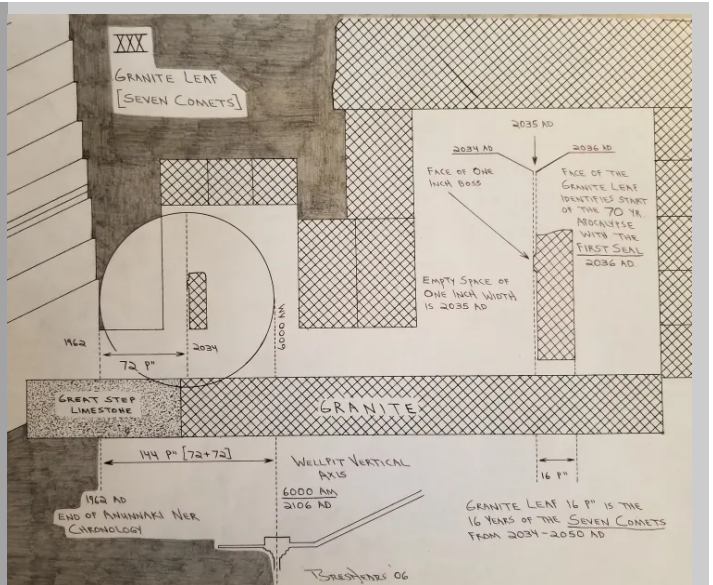 XXX
GRANITE LEAF
[SEVEN COMETS]
2035 AD
2034 AD
2036 AD
FACE OF ONE
INCH BOSS
FACE OF THE
GRANITE LEAF
IDENTIFIES START
OF THE 70 YR.
APOCALYPSE
WITH THE
FIRST SEAL
2036 AD
EMPTY SPACE OF
ONE INCH WIDTH
IS 2035 AD
1962
2034
6000 AM
72 P"
GREAT STEP
LIMESTONE
GRANITE
144 P" [72+72]
16 P"
WELLPIT VERTICAL
AXIS
6000 AM
2106 AD
1962 AD
END OF ANUNNAKI NER
CHRONOLOGY
GRANITE LEAF 16 P" IS THE
16 YEARS OF THE SEVEN COMETS
FROM 2034-2050 AD
BRESHEARS '06